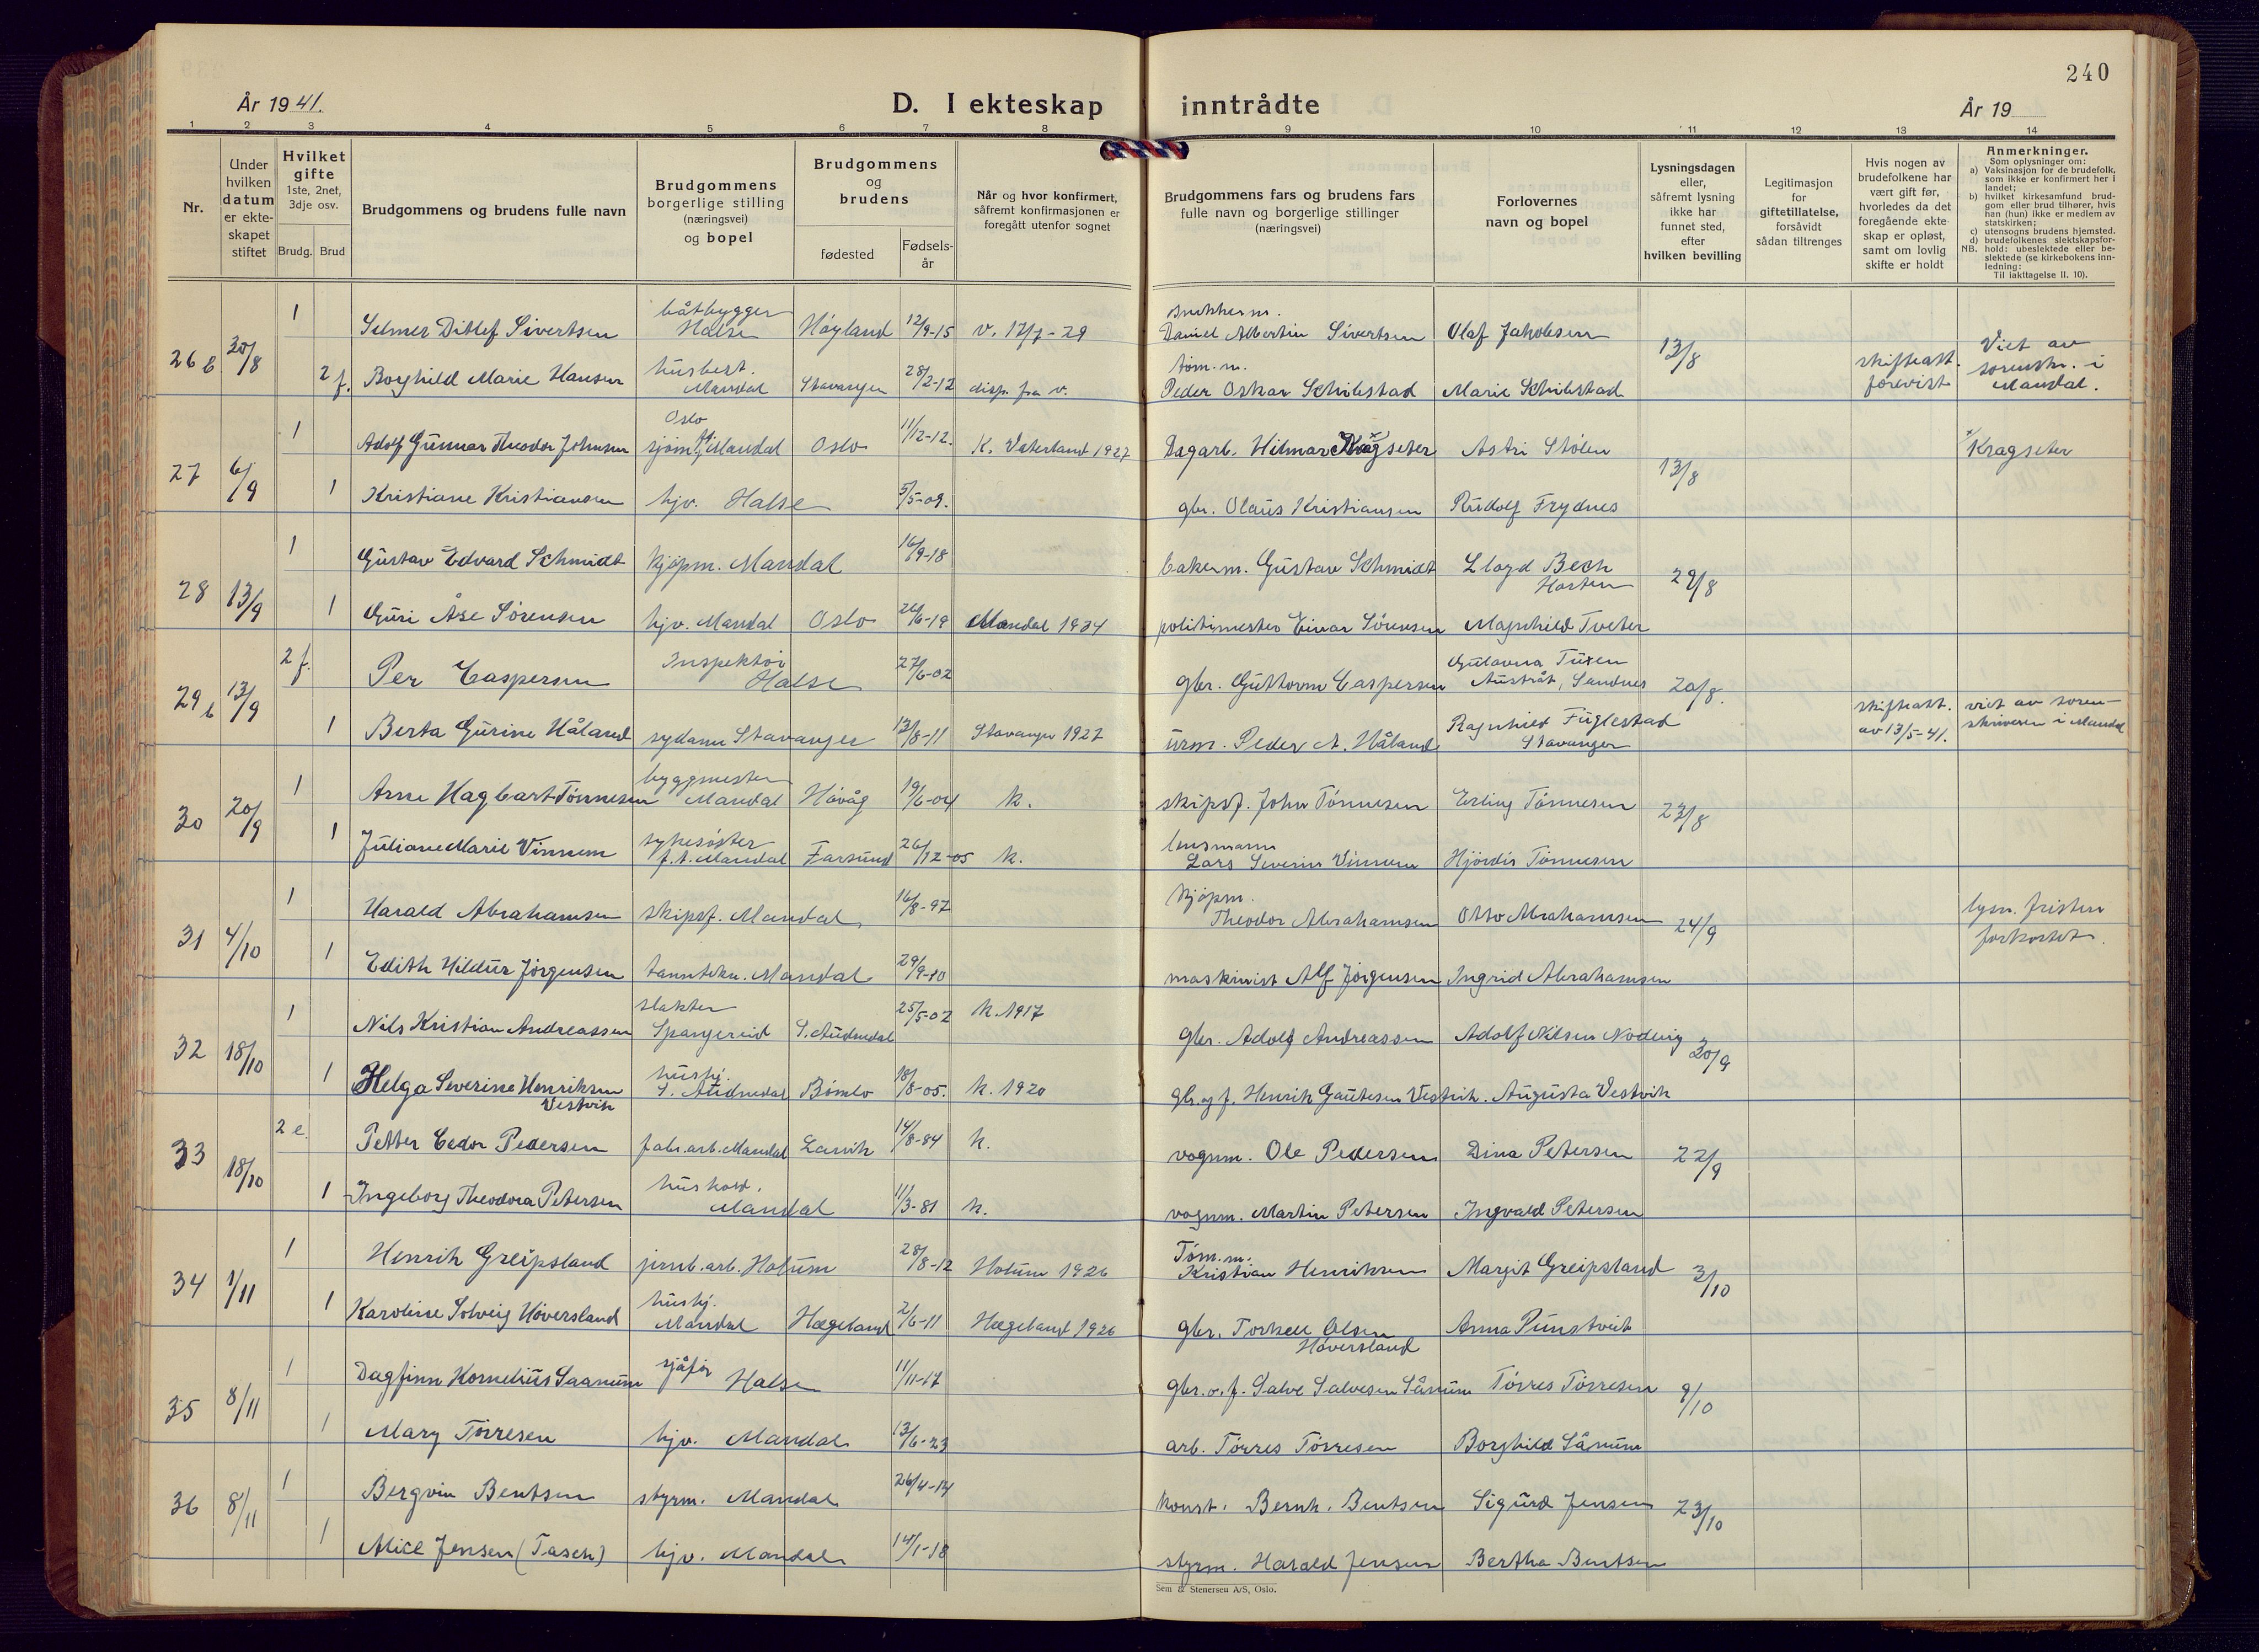 240
År 1941.
D. I ekteskap inntrådte
År 19
1 2 3 4 5 6 7 8 9 10 11 12 13 14
Nr.
Under hvilken datum er ekteskapet stiftet
Hvilket gifte
1ste, 2net, 3dje osv.
Brudg. Brud
Brudgommens og brudens fulle navn
Brudgommens borgerlige stilling (næringsvei) og bopel
Brudgommens og brudens
fødested
Fødsels-år
Når og hvor konfirmert, såfremt konfirmasjonen er foregått utenfor sognet
Brudgommens fars og brudens fars fulle navn og borgerlige stillinger (næringsvei)
Forlovernes navn og bopel
Lysningsdagen eller, såfremt lysning ikke har funnet sted, efter hvilken bevilling
Legitimasjon for giftetillatelse, forsåvidt sådan tiltrenges
Hvis nogen av brudefolkene har vært gift før, hvorledes da det foregående ekteskap er opløst, samt om lovlig skifte er holdt
Anmerkninger.
Som oplysninger om:
a) Vaksinasjon for de brudefolk, som ikke er konfirmert her i landet;
b) hvilket kirkesamfund brudgom eller brud tilhører, hvis han (hun) ikke er medlem av statskirken;
c) utensogns brudens hjemsted.
d) brudefolkenes slektskapsforhold: ubeslektede eller beslektede (se kirkebokens innledning:
NB.
Til iakttagelse II. 10).
26 b. 30/8 1 Selmer Ditlef Sivertsen båtbygger Halse Høyland 12/9-15 v. 12/7-29 Daniel Albertin Sivertsen Olaf Jakobsen 13/8
2 f. Borghild Marie Hansen husbest. Mandal Stavanger 28/2-12 disp. fra v. tøm.m. Peder Oskar Schibstad Marie Schibstad skifteatt. forevist Viet av sorenskr. i Mandal.
27 6/9 1 Adolf Gunnar Theodor Johnsen Oslo sjøm. Mandal Oslo 11/12-12. K. Vaterland 1927 Dagarb. Hilmar Kragseter Astri Stølen 13/8 x Kragseter
1 Kristiane Kristiansen hjv. Halse 5/5-09. gbr. Olaus Kristiansen Rudolf Frydnes
28 13/9 1 Gustav Edvard Schmidt kjøpm. Mandal 16/9-18 bakerm. Gustav Schmidt Lloyd Bech Horten 29/8
1 Guri Åse Sørensen hjv. Mandal Oslo 26/6-19 Mandal 1934 politimester Einar Sørensen Magnhild Tveter
29 b 13/9 2 f. Per Caspersen Inspektør Halse 27/6-02 gbr. Guttorm Caspersen Gulovna Tuxen Austråt, Sandnes 20/8.
1 Berta Gurine Håland sydame Stavanger 13/8-11 Stavanger 1927 urm. Peder A. Håland Ragnhild Fuglestad Stavanger skifteatt. av 13/5-41. viet av sorenskriveren i Mandal
30 20/9 1 Arne Hagbart Tønnesen byggmester Mandal Høvåg 19/6-04 k. skipsf. John Tønnesen Erling Tønnesen 23/8
1 Juliane Marie Vinnem sykesøster f.t. Mandal Farsund 26/12-05 k. lensmann Lars Severin Vinnem Hjørdis Tønnesen
31 4/10 1 Harald Abrahamsen skipsf. Mandal 16/8-97 kjøpm. Theodor Abrahamsen Otto Abrahamsen 24/9 lysn. fristen forkortet.
1 Edith Hildur Jørgensen tanntekn. Mandal 29/9-10 maskinist Alf Jørgensen Ingrid Abrahamsen
32 18/10 1 Nils Kristian Andreassen slakter Spangereid S. Audnedal 25/5-02 k. 1917 gbr. Adolf Andreassen Adolf Nilsen Nodeig 30/9
1 Helga Severine Henriksen Vestvik hushj. S. Audnedal Bømlo 18/8-05. k. 1920 gbr.og f. Henrik Gautesen Vestvik. Augusta Vestvik
33 18/10 2 e. Petter Cedor Pedersen fabr.arb. Mandal Larvik 14/8-84 k. vognm. Ole Pedersen Dina Petersen 22/9
1 Ingeborg Theodora Petersen hushold. Mandal 11/3-81 k. vognm. Martin Petersen Ingvald Petersen
34 1/11 1 Henrik Greipsland jernb.arb. Holum 28/8-12 Holum 1926 Tøm.m. Kristian Henriksen Margit Greipsland 3/10
1 Karoline Solveig Høversland hushj. Mandal Hægeland 2/6-11 Hægeland 1926 gbr. Torkell Olsen Høversland Anna Punstveit
35 8/11 1 Dagfinn Kornelius Saanum sjåfør Halse 11/11-17 gbr. o. f. Salve Salvesen Sånum Tørres Tørresen 9/10
1 Mary Tørresen hjv. Mandal 13/6-23 arb. Tørres Tørresen Borghild Sånum
36 8/11 1 Bergvin Bentsen styrm. Mandal 26/4-14 konst. Bernh. Bentsen Sigurd Jensen 23/10
1 Alice Jensen (Tasch) hjv. Mandal 14/1-18 styrm. Harald Jensen Bertha Bentsen
Sem & Stenersen A/S, Oslo.